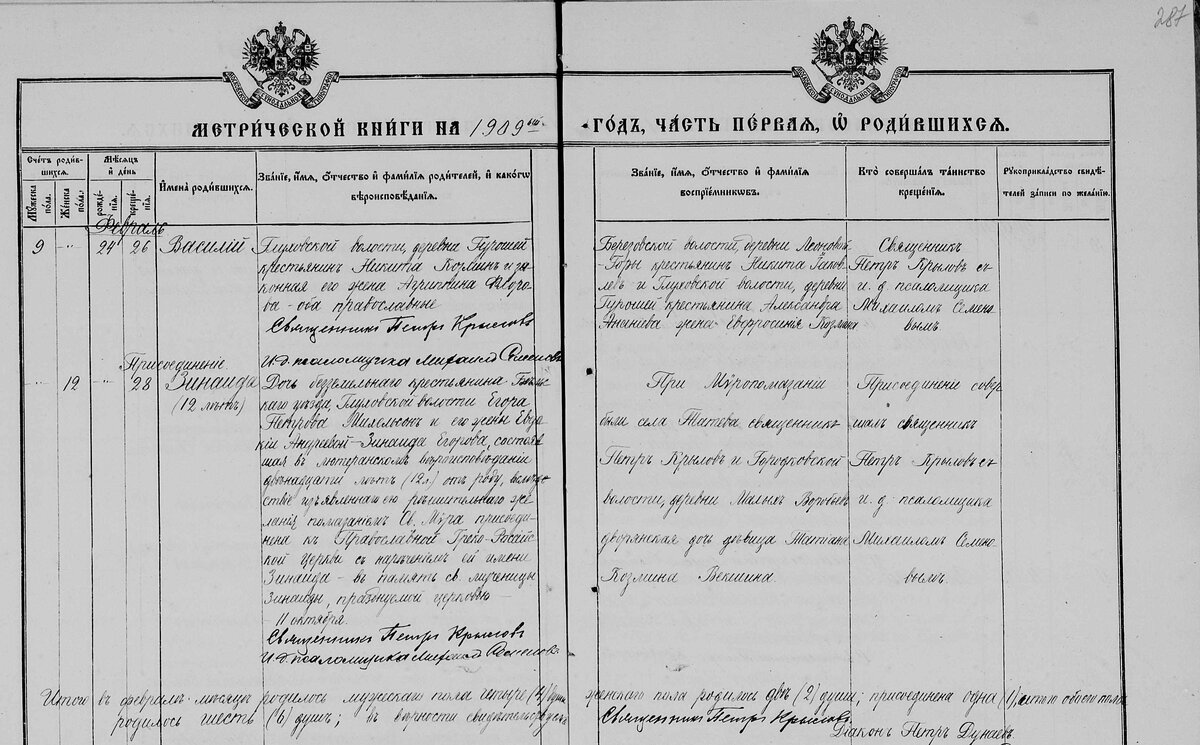 287
МЕТРИ́ЧЕСКОЙ КНИ́ГИ НА 1909ый
ГО́ДЪ, ЧА́СТЬ ПЕ́РВАЯ, Ѡ РОДИ́ВШИХСѦ.
Сче́тъ роди́в-
шихсѧ.
Мужеска
по́ла.
Же́нска
по́ла.
Мѣ́сѧцъ
и҆ де́нь
рожде́-
нїѧ.
креще́-
нїѧ.
И҆мена̀ роди́вшихсѧ.
Зва́нїе, и҆́мѧ, ѻ҆́тчество и҆ фами́лїѧ роди́телей, и҆ како́гѡ
вѣроисповѣ́данїѧ.
Зва́нїе, и҆́мѧ, ѻ҆́тчество и҆ фами́лїѧ
воспрїе́мниковъ.
Кто̀ соверша́лъ та́инство
креще́нїѧ.
Рукоприкла́дство свидѣ́-
телей за́писи по жела́нїю.
Февраль
9 -„- 24 26 Василій
Глуховской волости, деревни
крестьянинъ Никита Козминъ и за-
конная его жена Агрипина Ѳедоро-
ва - оба православные
Священникъ Петръ Крыловъ
И. д. псаломщика Михаилъ Семеновъ
Березовской волости, деревни
Горы крестьянинъ Никита Яков-
левъ и Глуховской волости, деревни
крестьянина Александра
Ананьева жена Евфросинія Козмина
Священникъ
Петръ Крыловъ съ
и. д. псаломщика
Михаиломъ Семено-
вымъ
Присоединеніе.
12 28 Зинаида
(12 лѣтъ)
Дочь безземельнаго крестьянина
скаго уѣзда, Глуховской волости Егора
Петрова Михельсонъ и его жены
Андреевой - Зинаида Егорова, состояв-
шая въ лютеранскомъ вѣроисповѣданіи
двѣнадцати лѣтъ (12 л) отъ роду, вслѣд-
ствіе изъявленнаго ею рѣшительнаго же-
ланія помазаніемъ Св. Мѵра присоеди-
нена къ Православной Греко-Россій-
ской Церкви съ нареченіемъ ей имени
Зинаида - въ память св. мученицы
Зинаиды, празднуемой церковью -
- 11 октября.
Священникъ Петръ Крыловъ
И. д. псаломщика Михаилъ Семеновъ
При Мѵропомазаніи
были села Татева священникъ
Петръ Крыловъ и Городковской
волости, деревни Малыхъ
дворянская дочь дѣвица Татіана
Козмина Векшина.
Присоединеніе совер-
шалъ священникъ
Петръ Крыловъ съ
и. д. псаломщика
Михаиломъ Семено-
вымъ.
Итого въ февралѣ мѣсяцѣ родилось мужескаго пола четыре (4) души женскаго пола родилось двѣ (2) души; присоединена одна (1), итого обоего пола
родилось шесть (6) душъ; въ вѣрности Священникъ Петръ Крыловъ
Діаконъ Петръ Дунаевъ